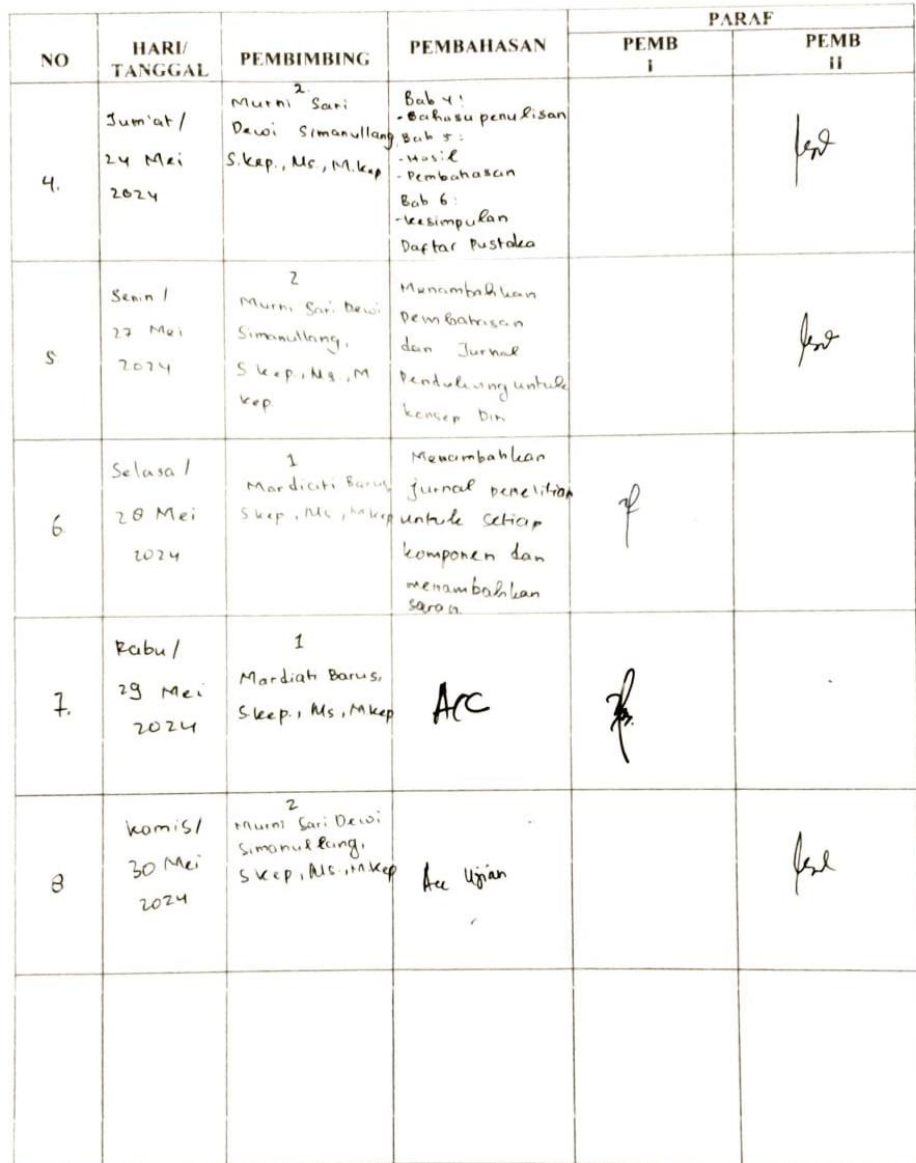 PARAF
NO
HARI/
TANGGAL
PEMBIMBING
PEMBAHASAN
PEMB
i
PEMB
ii
4.
Jum'at /
24 Mei
2024
2.
Murni Sari
Dewi Simanullang
S.kep., Ns., M.kep
Bab 4 :
- Bahasa penulisan
Bab 5 :
- Hasil
- Pembahasan
Bab 6 :
- kesimpulan
Daftar Pustaka
5.
Senin /
27 Mei
2024
2
Murni Sari Dewi
Simanullang,
S kep., Ns., M
kep.
Menambahkan
pembahasan
dan Jurnal
Pendukung untuk
konsep
6.
Selasa /
28 Mei
2024
1
Mardiati Barus
S kep, Ns, M kep
Menambahkan
jurnal penelitian
untuk setiap
komponen dan
menambahkan
saran
7.
Rabu /
29 Mei
2024
1
Mardiati Barus,
S.kep., Ns, Mkep
Acc
8
Komis/
30 Mei
2024
2
Murni Sari Dewi
Simanullang,
S kep, Ns., M.kep
Acc Ujian